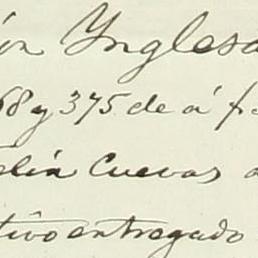 ión Ynglesa
68 y 375 de á f
elin Cuevas
tivo entregado